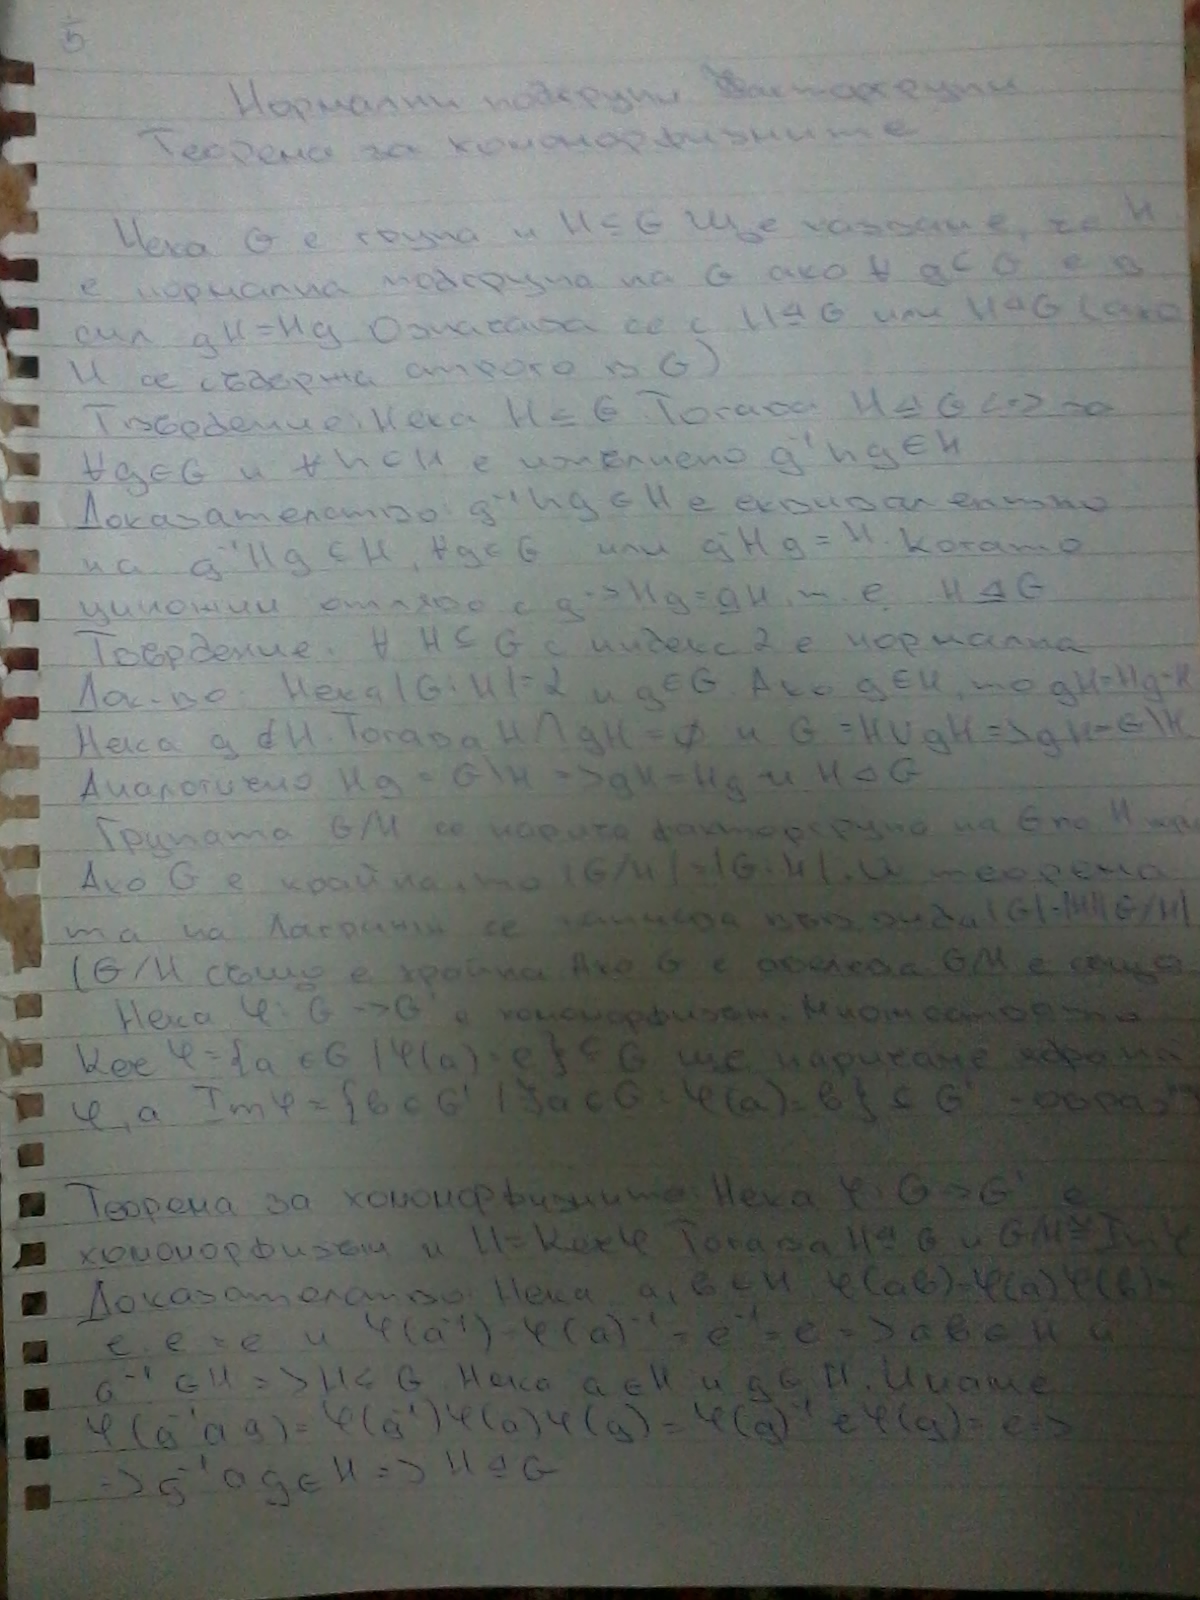 5
Нормални подгрупи Факторгрупи
Теорема за хомоморфизмите
Нека G е група и H ≤ G Ще казваме, че H
е нормална подгрупа на G ако ∀ g ∈ G е в
сила gH = Hg Означава се с H ⊴ G или H ⊲ G (ако
H се съдържа строго в G)
Твърдение: Нека H ≤ G. Тогава H ⊴ G <=> за
∀g∈G и ∀h∈H е изпълнено g⁻¹hg∈H
Доказателство: g⁻¹hg ∈ H е еквивалентно
на g⁻¹Hg ⊂ H, ∀g∈G или g⁻Hg = H. Когато
умножим отляво с g -> Hg = gH, т. е. H ⊴ G
Твърдение. ∀ H ≤ G с индекс 2 е нормална
Док-во: Нека |G:H| = 2 и g∈G Ако g∈H, то gH=Hg=H
Нека g ∉ H. Тогава H ∩ gH = ∅ и G = H∪gH => gH = G\H
Аналогично Hg = G\H => gH = Hg и H ⊲ G
Групата G/H се нарича факторгрупа на G по H
Ако G е крайна, то |G/H| = |G:H|. И теорема
та на Лагранж се записва във вида |G|=|H||G/H|
(G/H също е крайна Ако G е абелева G/H е също
Нека φ: G -> G' е хомоморфизъм. Множеството
Ker φ = {a ∈ G | φ(a) = e} ≤ G ще наричаме ядро на
φ, а Im φ = {b ∈ G' | ∃a ∈ G : φ(a) = b} ≤ G' - образ
Теорема за хомоморфизмите: Нека φ: G -> G' е
хомоморфизъм и H = Ker φ Тогава H ⊴ G и G/H ≅ Im φ
Доказателство: Нека a, b ∈ H φ(ab) = φ(a)φ(b) =
e.e = e и φ(a⁻¹) = φ(a)⁻¹ = e⁻¹ = e => ab ∈ H и
a⁻¹ ∈ H => H ≤ G Нека a ∈ H и g ∈ H. Имаме
φ(g⁻¹ag) = φ(g⁻¹)φ(a)φ(g) = φ(g)⁻¹ e φ(g) = e =>
=> g⁻¹ag ∈ H => H ⊴ G